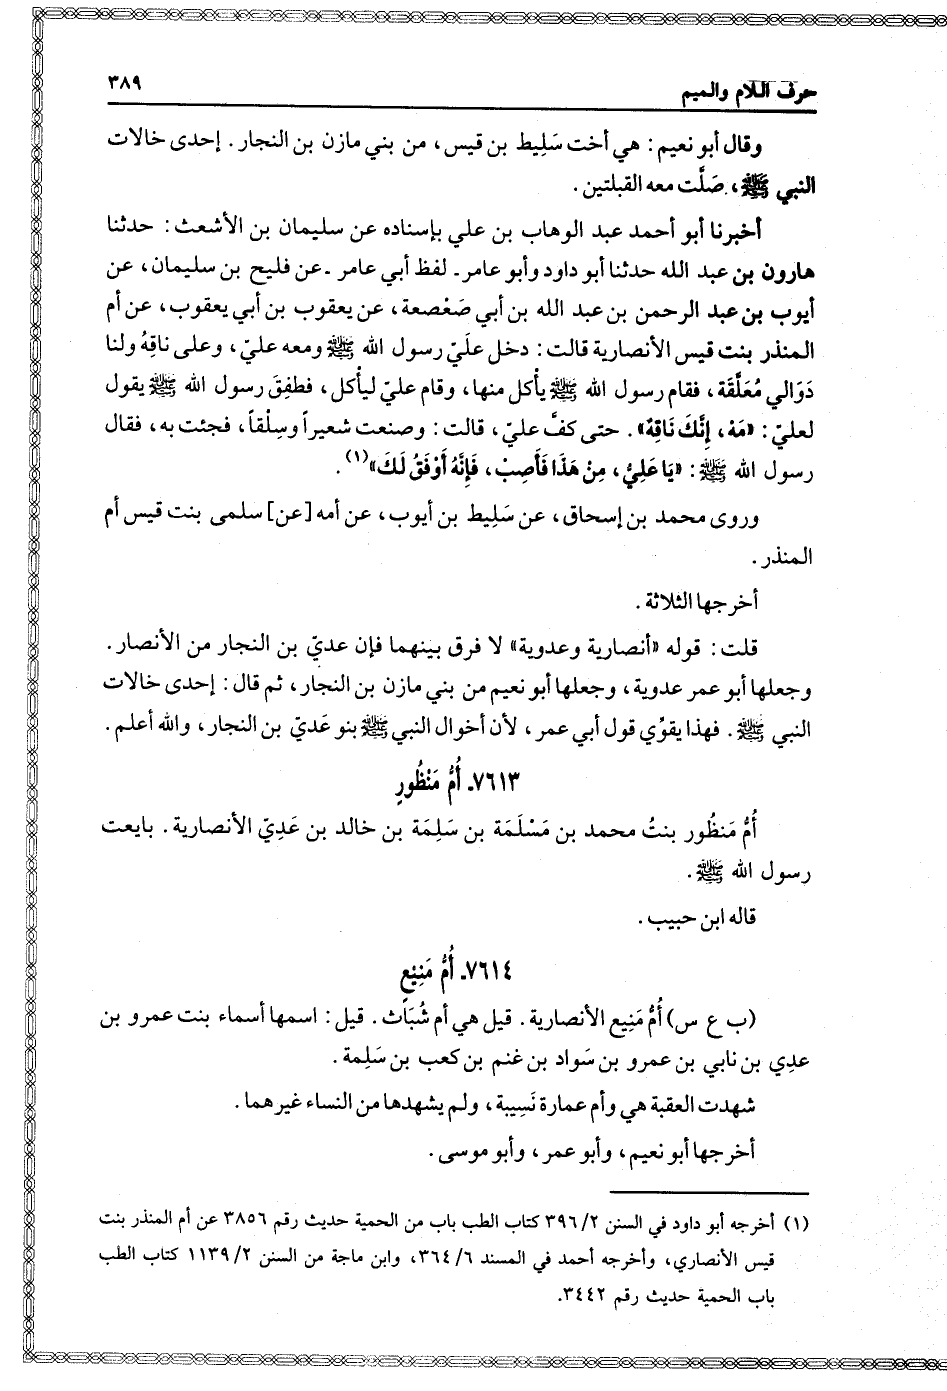 حرف اللام والميم ٣٨٩
وقال أبو نعيم: هي أخت سَلِيط بن قيس، من بني مازن بن النجار. إحدى خالات
النبي ﷺ، صَلَّت معه القبلتين.
أخبرنا أبو أحمد عبد الوهاب بن علي بإسناده عن سليمان بن الأشعث: حدثنا
هارون بن عبد الله حدثنا أبو داود وأبو عامر ـ لفظ أبي عامر ـ عن فليح بن سليمان، عن
أيوب بن عبد الرحمن بن عبد الله بن أبي صَعْصعة، عن يعقوب بن أبي يعقوب، عن أم
المنذر بنت قيس الأنصارية قالت: دخل علَيّ رسول الله ﷺ ومعه عليّ، وعلى ناقِهُ ولنا
دَوَالي مُعَلَّقة، فقام رسول الله ﷺ يأكل منها، وقام عليّ ليأكل، فطفِقَ رسول الله ﷺ يقول
لعليّ: «مَهْ، إِنَّكَ نَاقِهٌ». حتى كفَّ عليّ، قالت: وصنعت شعيراً وسِلْقاً، فجئت به، فقال
رسول الله ﷺ: «يَا عَلِيُّ، مِنْ هَذَا فَأَصِبْ، فَإِنَّهُ أَوْفَقُ لَكَ»(١).
وروى محمد بن إسحاق، عن سَلِيط بن أيوب، عن أمه [عن] سلمى بنت قيس أم
المنذر.
أخرجها الثلاثة.
قلت: قوله «أنصارية وعدوية» لا فرق بينهما فإن عديّ بن النجار من الأنصار.
وجعلها أبو عمر عدوية، وجعلها أبو نعيم من بني مازن بن النجار، ثم قال: إحدى خالات
النبي ﷺ. فهذا يقوِّي قول أبي عمر، لأن أخوال النبي ﷺ بنو عَديّ بن النجار، والله أعلم.
٧٦١٣ـ أُمُّ مَنْظُورٍ
أُمُّ مَنظُور بنتُ محمد بن مَسْلَمَة بن سَلِمَة بن خالد بن عَدِيّ الأنصارية. بايعت
رسول الله ﷺ.
قاله ابن حبيب.
٧٦١٤ـ أُمُّ مَنِيْعٍ
(ب ع س) أُمُّ مَنِيع الأنصارية. قيل هي أم شُبَاث. قيل: اسمها أسماء بنت عمرو بن
عدِي بن نابي بن عمرو بن سَواد بن غنم بن كعب بن سَلِمة.
شهدت العقبة هي وأم عمارة نَسِيبة، ولم يشهدها من النساء غيرهما.
أخرجها أبو نعيم، وأبو عمر، وأبو موسى.
(١) أخرجه أبو داود في السنن ٢/ ٣٩٦ كتاب الطب باب من الحمية حديث رقم ٣٨٥٦ عن أم المنذر بنت
قيس الأنصاري، وأخرجه أحمد في المسند ٦/ ٣٦٤، وابن ماجة من السنن ٢/ ١١٣٩ كتاب الطب
باب الحمية حديث رقم ٣٤٤٢.